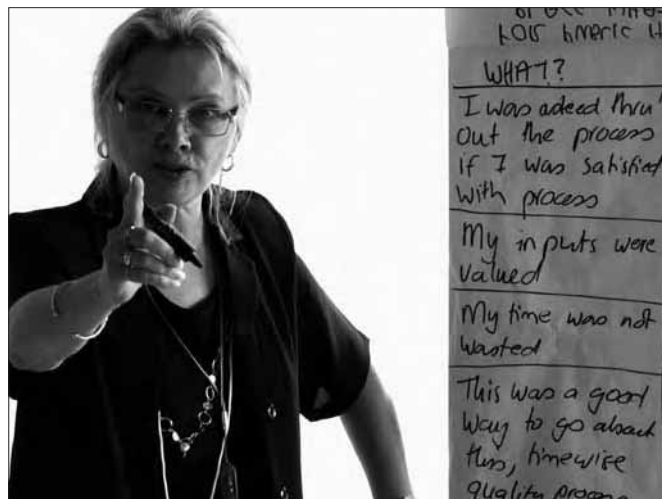 WHAT?
I was asked thru'
out the process
if I was satisfied
with process
My inputs were
valued
My time was not
wasted
This was a good
way to go about
this, timewise
quality